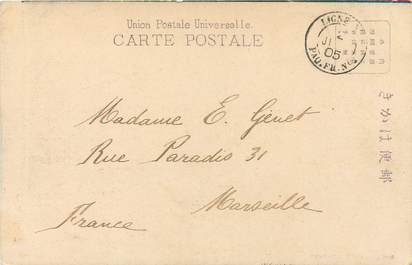 Union Postale Universelle.
CARTE POSTALE
LIGNE N
05
PAQ. FR. No
きかは便郵
Madame E. Genet
Rue Paradis 31
Marseille
France